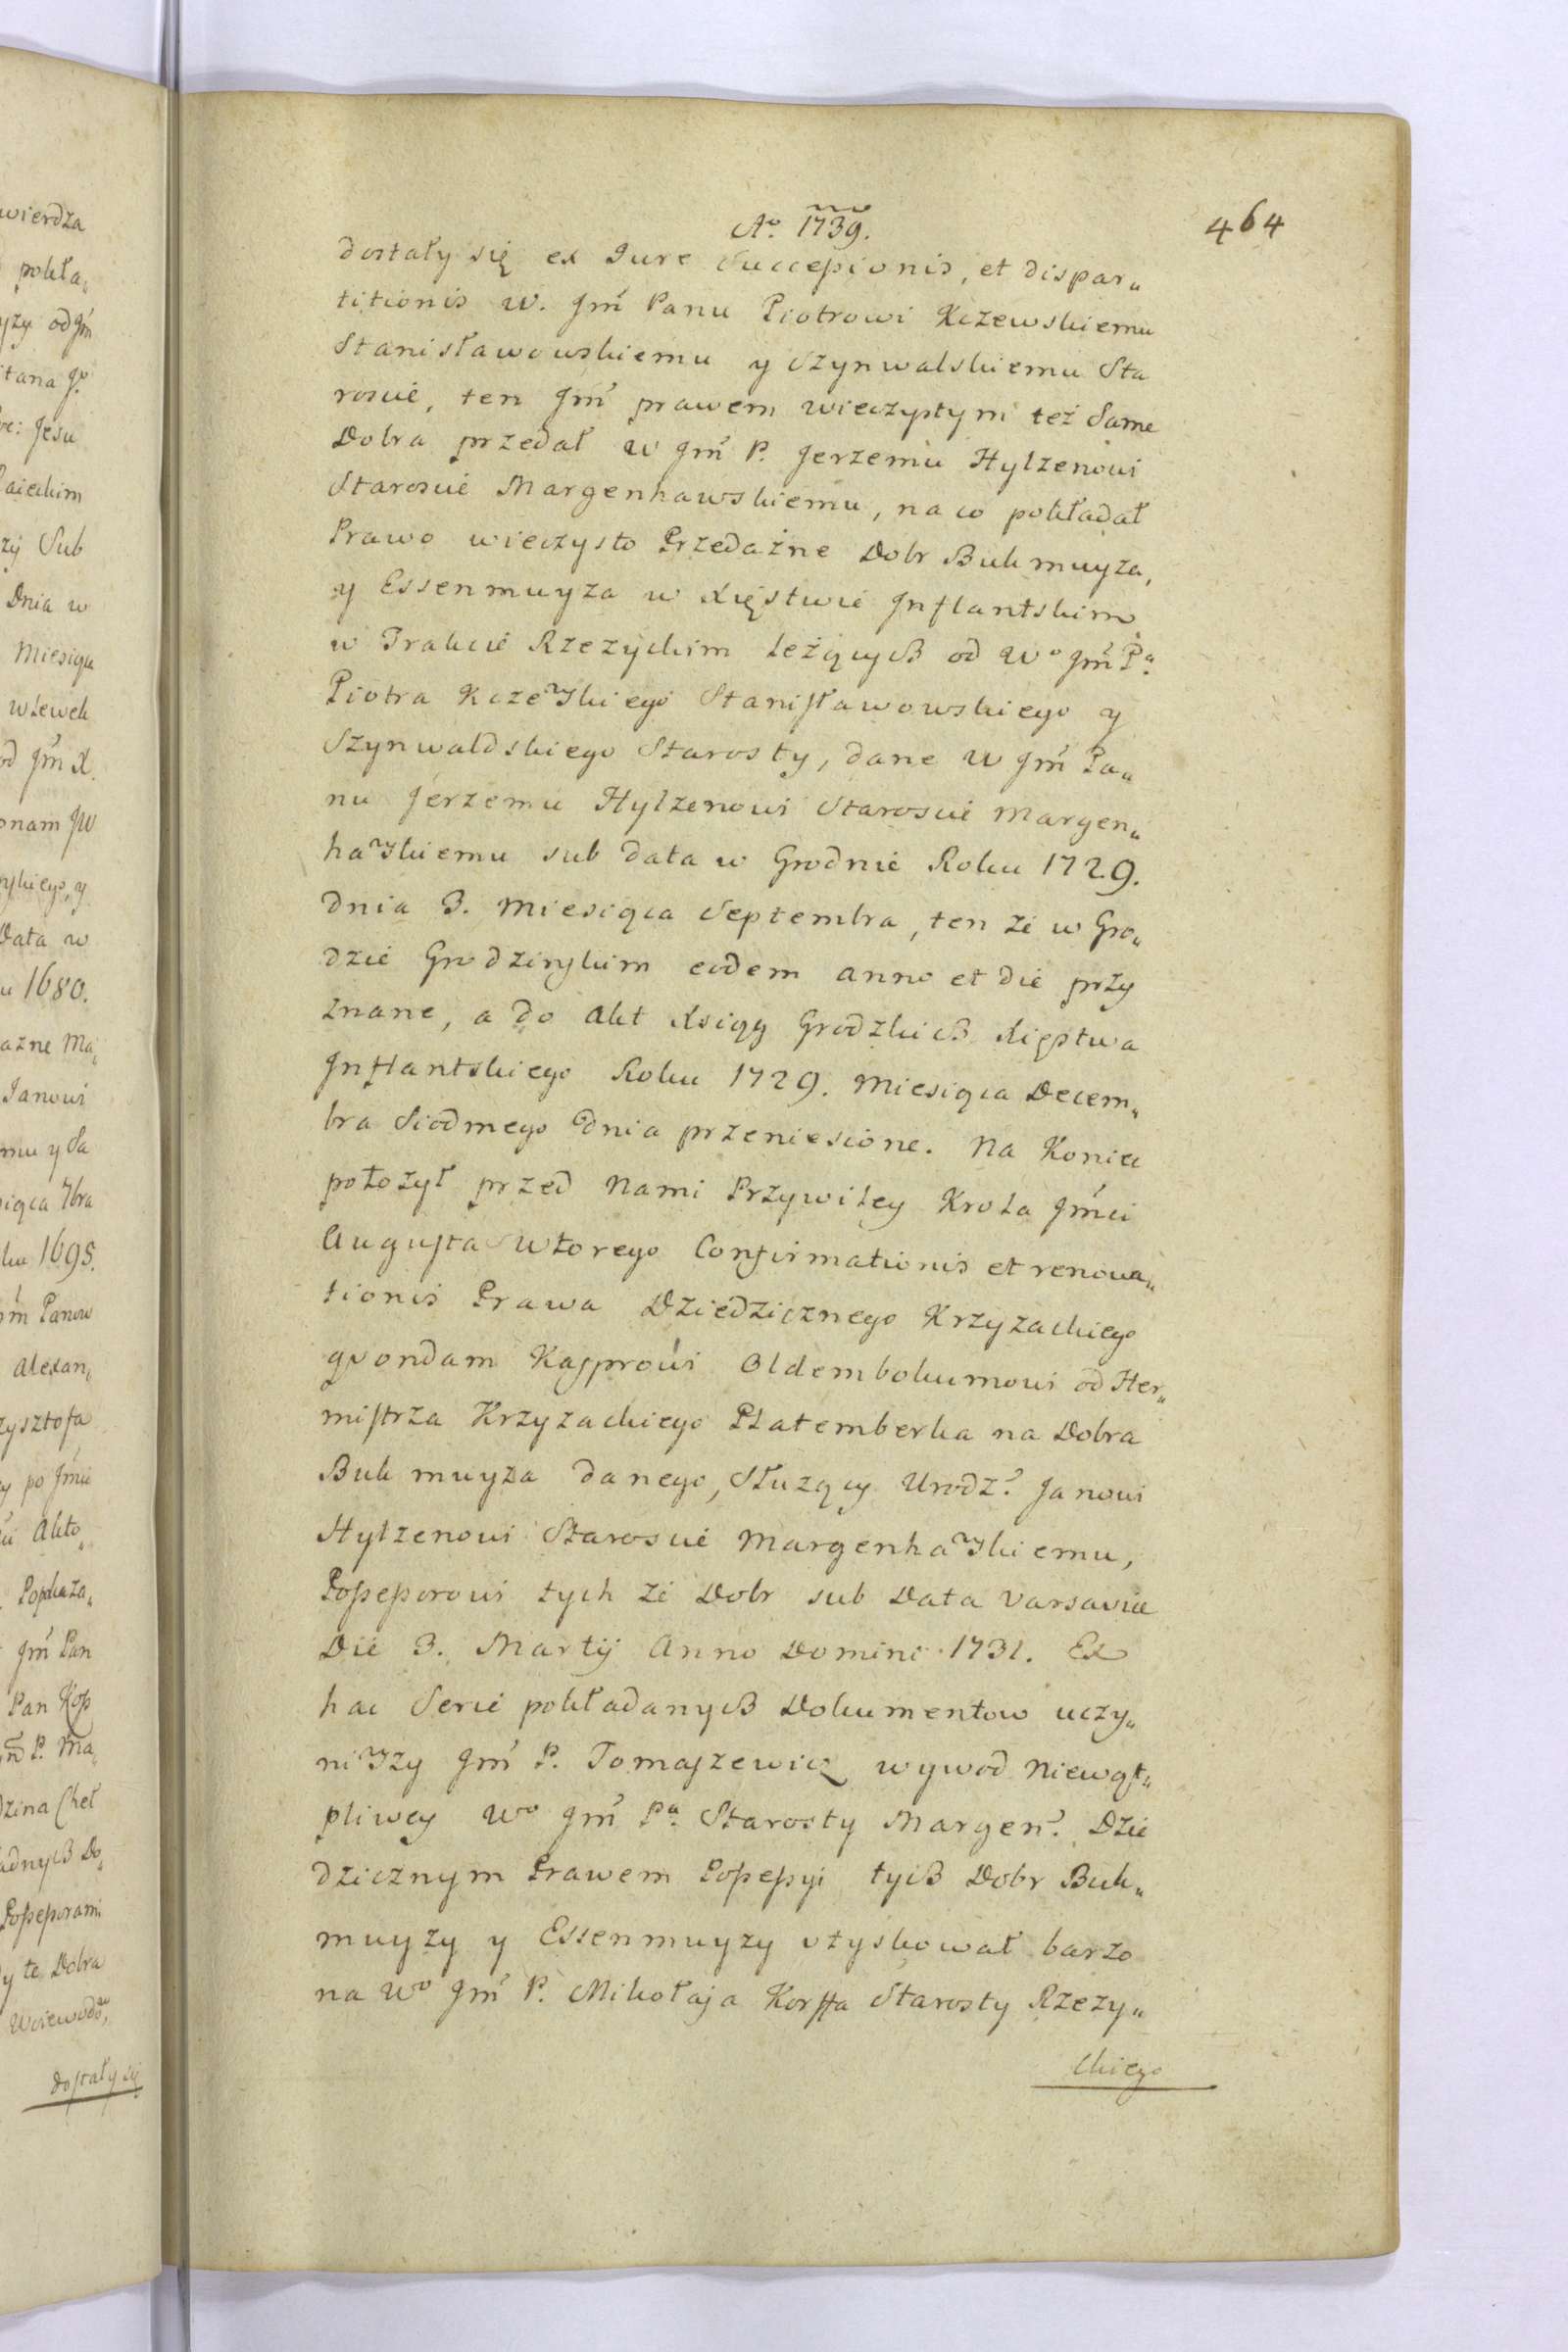 wierdza
pokła„
yzy od Jm̃
itana Jº
ve: Jesu
Paieckim
zy Sub
Dnia w
Miesiąca
w Lewek
od Jm̃ X.
onam JW
yskiego, y
Data w
u 1680.
azne Ma„
Janowi
mu y Sa
siąca 7bra
ku 1698.
Jm̃ Panow
Alexan„
zysztofa
y po Jm̃ie
Akto„
Popkaza„
Jm̃ Pan
Pan Koss
Jm̃ P. Ma
dzina Cheł
adnych Do„
Possessorami
y te Dobra
Woiewodº
dostały się
Aº 1739.
464
dostały się ex Jure Successionis, et dispar„
titionis W. Jm̃ Panu Piotrowi Kczewskiemu
Stanisławowskiemu y Szynwalskiemu Sta
roscie, ten Jm̃ prawem wieczystym też Same
Dobra przedał W Jm̃ P. Jerzemu Hylzenowi
Staroscie Margenhawskiemu, na co pokładał
Prawo wieczysto Przedażne Dobr Bukmuyza,
y Essenmuyza w Xięstwie Inflantskim
w Trakcie Rzezyckim leżących od Wº Jm̃ Pª
Piotra Kczewskiego Stanisławowskiego y
Szynwaldskiego Starosty, dane W Jm̃ Pa„
nu Jerzemu Hylzenowi Staroscie Margen„
hawskiemu sub data w Grodnie Roku 1729.
dnia 3. Miesiąca Septembra, ten że w Gro„
dzie Grodzinskim eodem anno et die przy
znane, a do Akt Xsiąg Grodzkich Xięstwa
Inflantskiego Roku 1729. Miesiąca Decem„
bra Siodmego dnia przeniesione. Na Koniec
położył przed Nami Przywiley Krola Jm̃ci
Augusta Wtorego Confirmationis et renova„
tionis Prawa Dziedzicznego Krzyzackiego
qvondam Kasprowi Oldembokumowi od Her„
mistrza Krzyzackiego Platemberka na Dobra
Bukmuyza danego, Służący Urodz? Janowi
Hylzenowi Staroscie Margenhawskiemu,
Possessorowi tych że Dobr sub Data Varsaviæ
Die 3. Martij Anno Domini 1731. Ex
hac Serie pokładanych Dokumentow uczy„
niwszy Jm̃ P. Tomaszewicz wywod niewąt„
pliwey Wº Jm̃ Pª Starosty Margen? Dzie
dzicznym Prawem Possessyi tych Dobr Buk„
muyzy y Essenmuyzy użyskował barzo
na Wº Jm̃ P. Mikołaja Korffa Starosty Rzezy„
ckiego